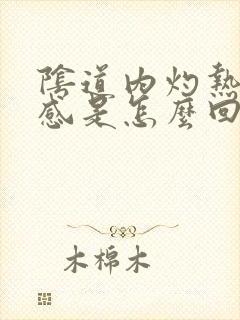 陰道內灼熱
感是怎麼回
木棉木